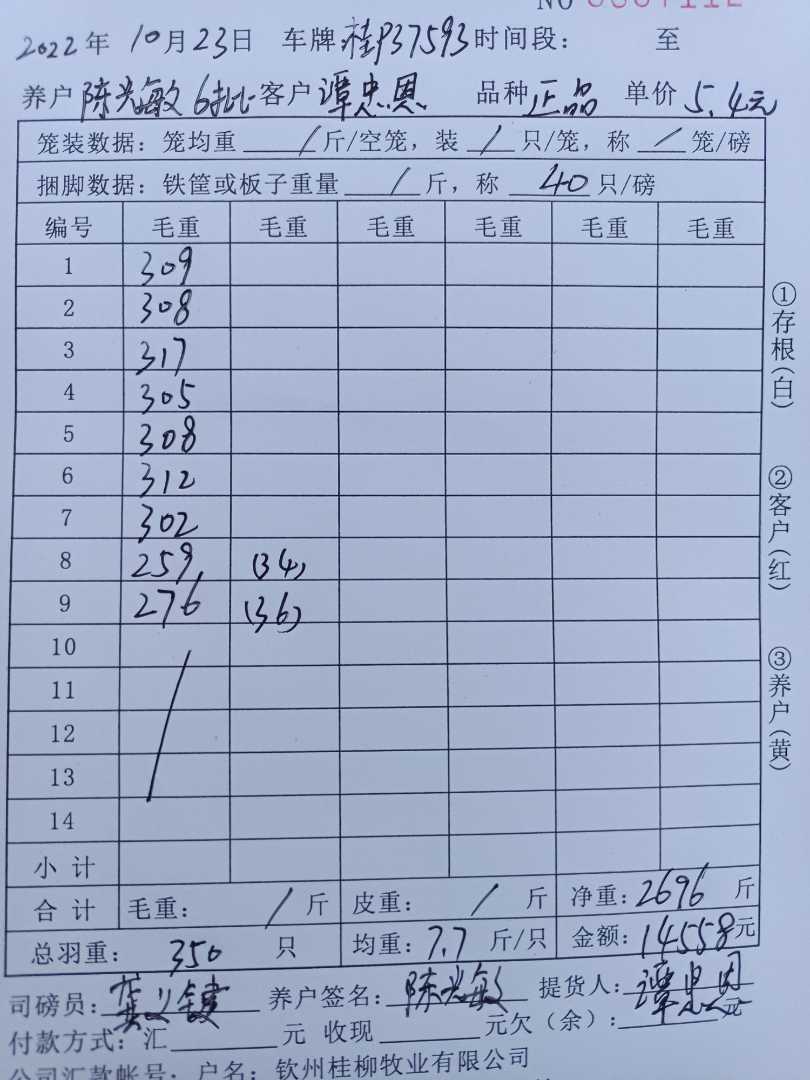 2022年 10月23日 车牌:桂P37593 时间段: 至
养户 陈光敏 6批 客户 谭忠恩 品种 正品 单价 5.4元
笼装数据: 笼均重 / 斤/空笼, 装 / 只/笼, 称 / 笼/磅
捆脚数据: 铁筐或板子重量 / 斤, 称 40 只/磅
编号 毛重 毛重 毛重 毛重 毛重 毛重
1 309
2 308
3 317
4 305
5 308
6 312
7 302
8 259 (34)
9 276 (36)
10
11
12
13
14
小计
合计 毛重: / 斤 皮重: / 斤 净重: 2696 斤
总羽重: 350 只 均重: 7.7 斤/只 金额: 14558元
司磅员: 养户签名: 陈光敏 提货人:
付款方式: 汇 元 收现 元欠(余): 元
公司汇款帐号: 户名: 钦州桂柳牧业有限公司
①存根(白)
②客户(红)
③养户(黄)